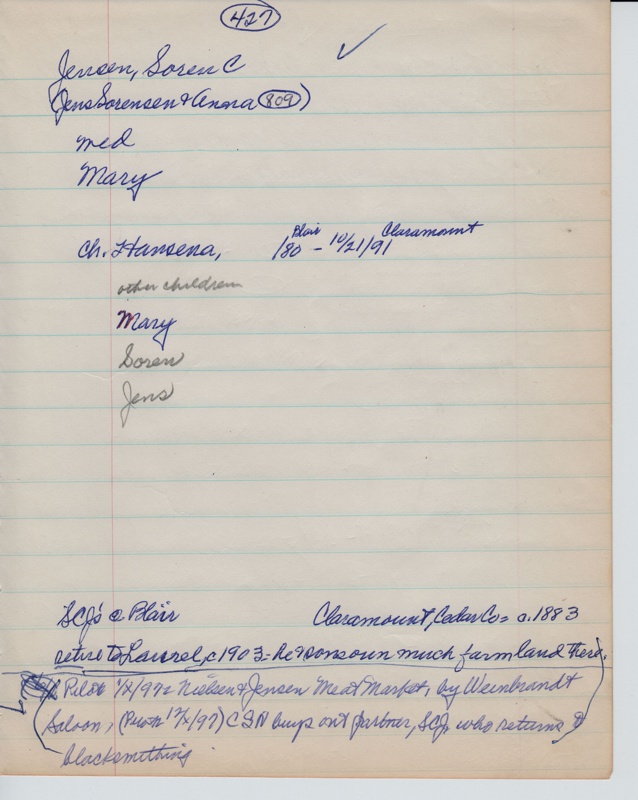 427
Jensen, Soren C ✓
(Jens Sorensen & Anna 809)
med
Mary
Ch. Hansena, Blair /80 - 10/21/91 Claramount
other children
Mary
Soren
Jens
SCJ's @ Blair Claramount, Cedar Co = c.1883
retire to Laurel, c1903 - he & sons own much farmland there.
Pilot 1/X/97= Nielsen & Jensen Meat Market, by Weinbrandt
Saloon, (Pilot 12/X/97) C S N buys out partner, SCJ, who returns to
blacksmithing